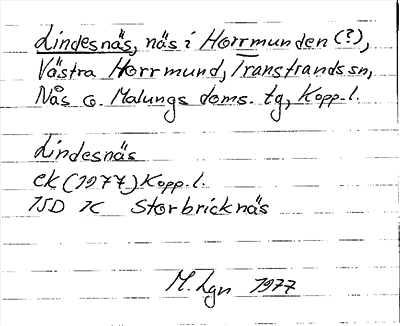 Lindesnäs, näs i Horrmunden (?),
Västra Horrmund, Transtrands sn,
Nås o. Malungs doms. tg, Kopp. l.
Lindesnäs
ek (1977) Kopp. l.
15D 1c Storbricknäs
M. Lgn 1977